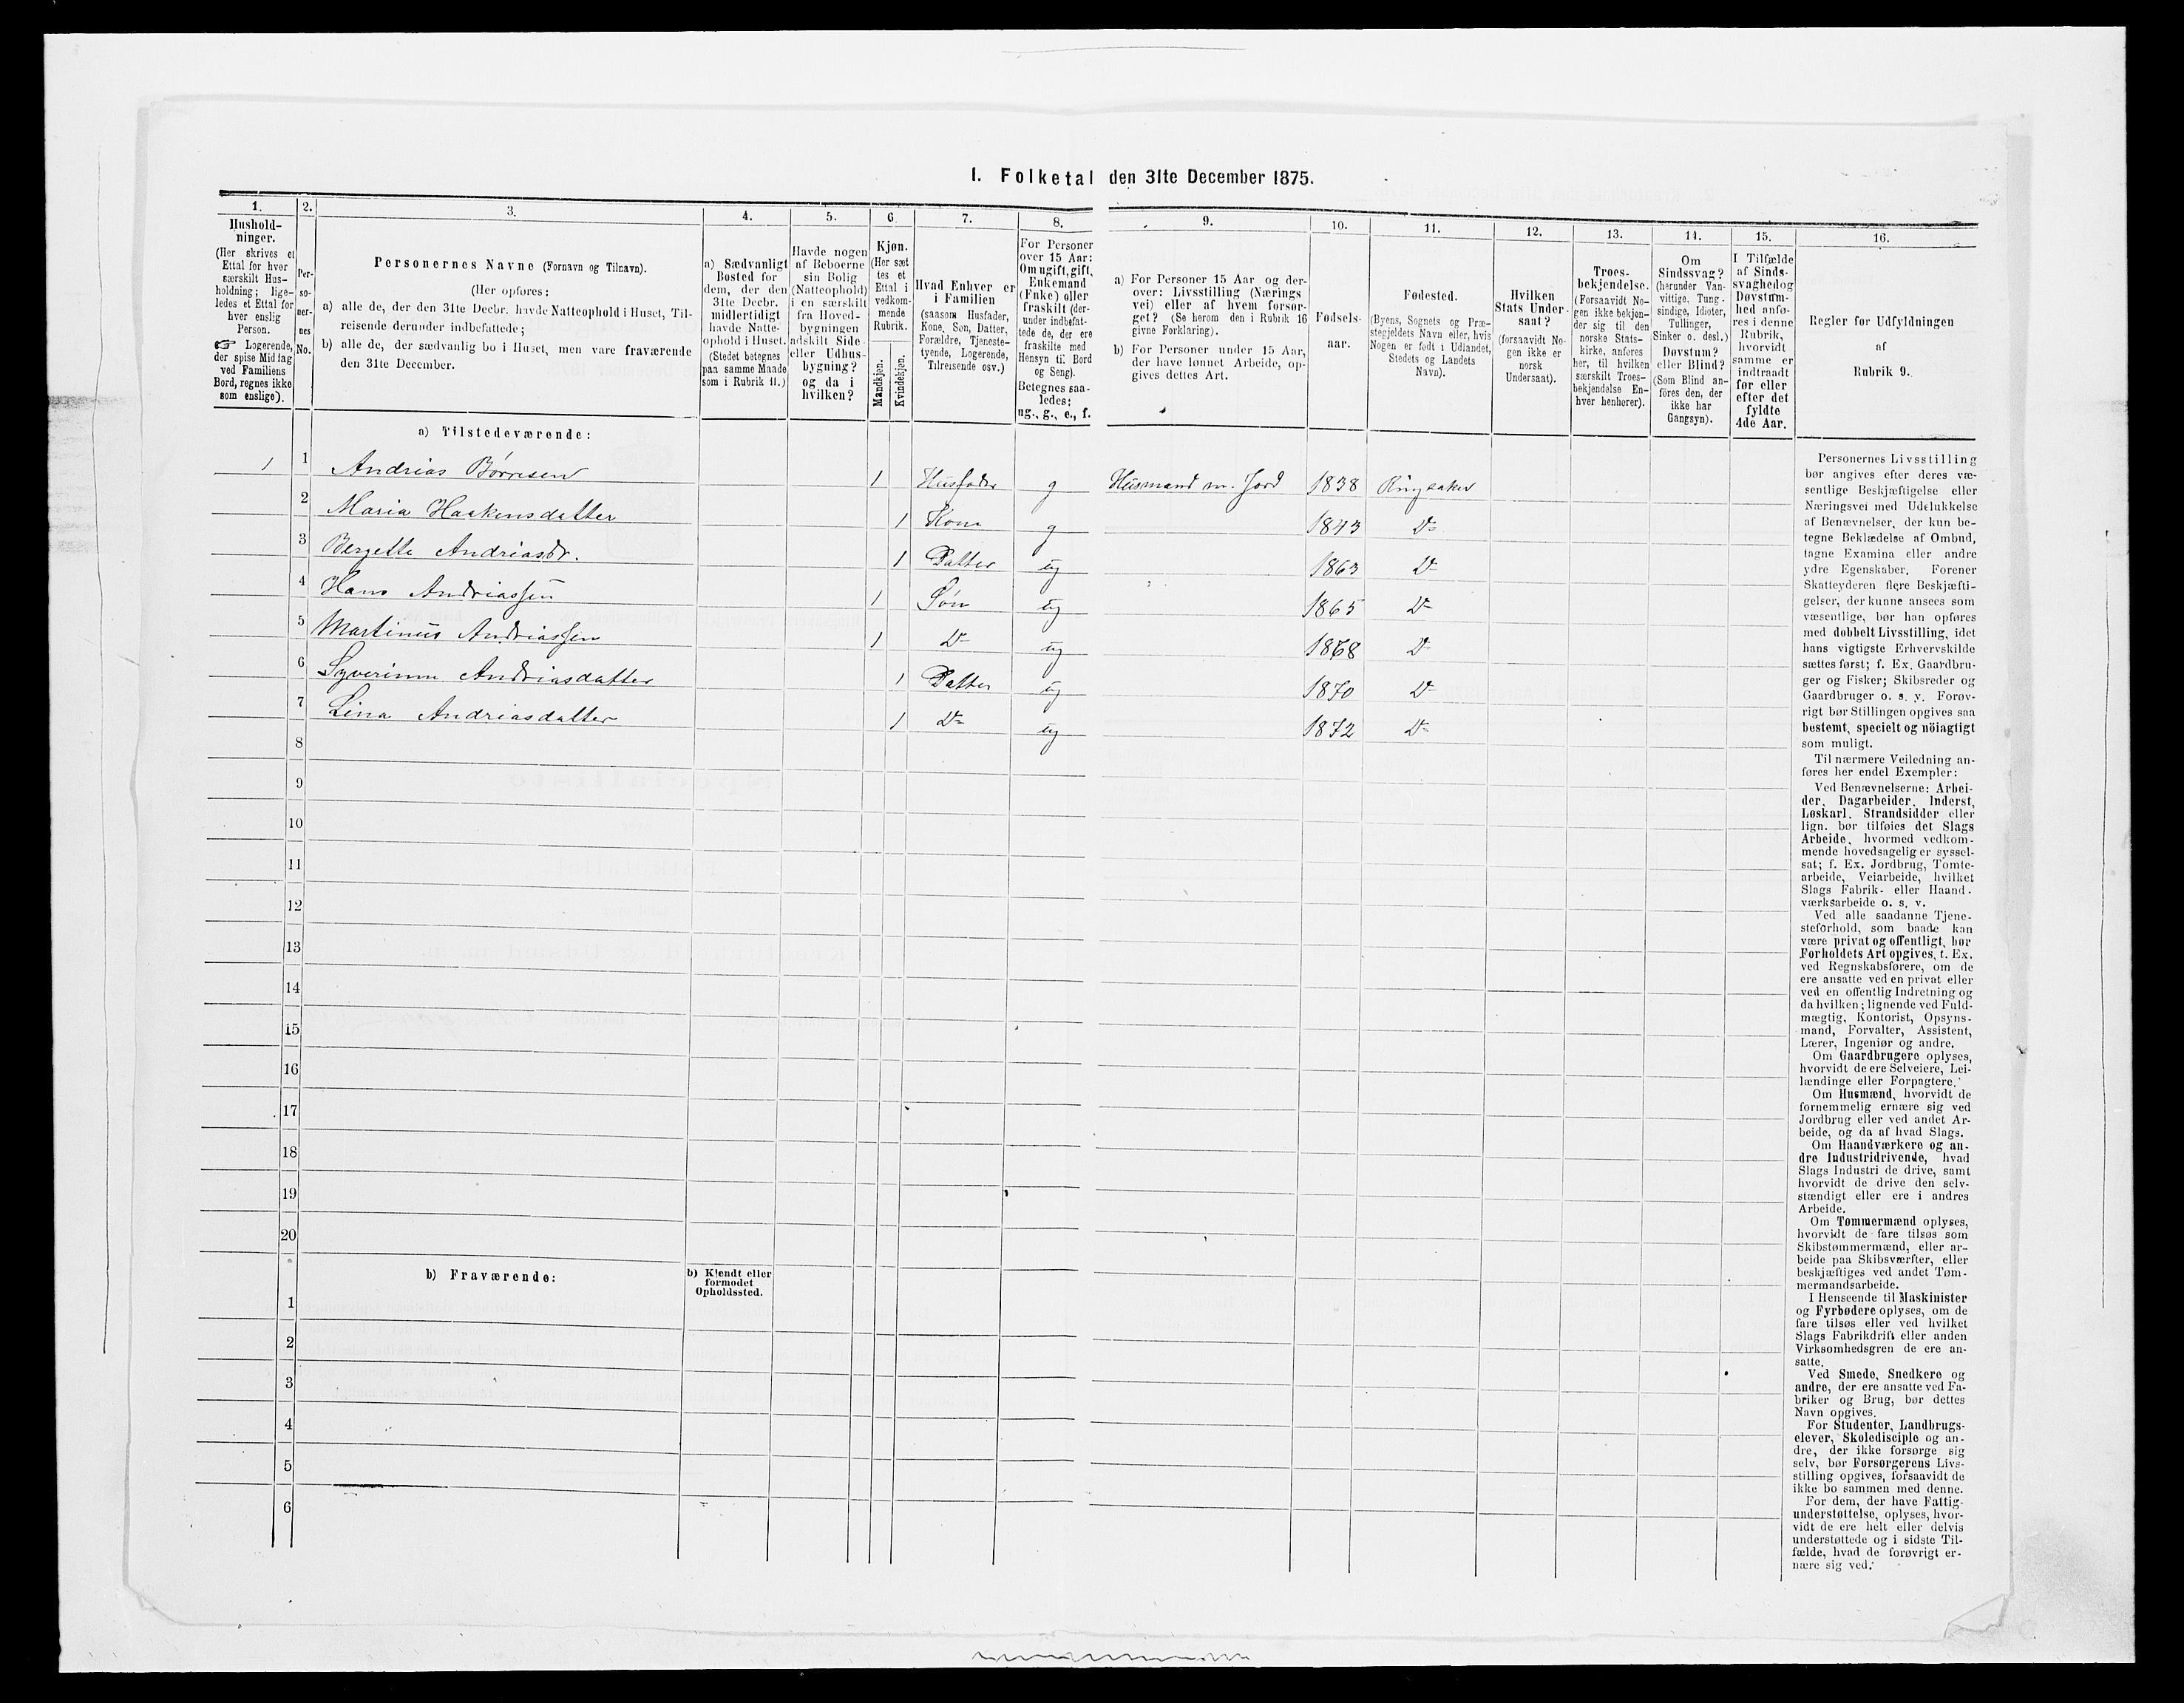 1. Folketal den 31te December 1875.
1.
Hushold-
ninger.
(Her skrives et
Ettal for hver
særskilt Hus-
holdning; lige-
ledes et Ettal for
hver enslig
Person.
☞ Logerende,
der spise Middag
ved Familiens
Bord, regnes ikke
som enslige).
2.
Per-
so-
ner-
nes
No.
3.
Personernes Navne (Fornavn og Tilnavn).
(Her opføres:
a) alle de, der den 31te Decbr. havde Natteophold i Huset, Til-
reisende derunder indbefattede;
b) alle de, der sædvanlig bo i Huset, men vare fraværende
den 31te December.
4.
a) Sædvanligt
Bosted for
dem, der den
31te Decbr.
midlertidigt
havde Natte-
ophold i Huset.
(Stedet betegnes
paa samme Maade
som i Rubrik 11.)
5.
Havde nogen
af Beboerne
sin Bolig
(Natteophold)
i en særskilt
fra Hoved-
bygningen
adskilt Side-
eller Udhus-
bygning?
og da i
hvilken?
6.
Kjøn.
(Her sæt
tes et
Ettal i
vedkom-
mende
Rubrik.
Mandkjøn.
Kvindekjøn.
7.
Hvad Enhver er
i Familien
(saasom Husfader,
Kone, Søn, Datter,
Forældre, Tjeneste-
tyende, Logerende,
Tilreisende osv.)
8.
For Personer
over 15 Aar:
Om ugift, gift,
Enkemand
(Enke) eller
fraskilt (der-
under indbefat-
tede de, der ere
fraskilte med
Hensyn til Bord
og Seng).
Betegnes saa-
ledes:
ug., g., e., f.
9.
a) For Personer 15 Aar og der-
over: Livsstilling (Nærings
vei) eller af hvem forsør-
get? (Se herom den i Rubrik 16
givne Forklaring).
b) For Personer under 15 Aar,
der have lønnet Arbeide, op-
gives dettes Art.
10.
Fødsels-
aar.
11.
Fødested.
(Byens, Sognets og Præ-
stegjeldets Navn eller, hvis
Nogen er født i Udlandet,
Stedets og Landets
Navn).
12.
Hvilken
Stats Under-
saat?
(forsaavidt No-
gen ikke er
norsk
Undersaat).
13.
Troes-
bekjendelse.
(Forsaavidt No-
gen ikke bekjen-
der sig til den
norske Stats-
kirke, anføres
her, til hvilken
særskilt Troes-
bekjendelse En-
hver henhører).
14.
Om
Sindssvag?
(herunder Van-
vittige, Tung-
sindige, Idioter,
Tullinger,
Sinker o. desl.)
Døvstum?
eller Blind?
(Som Blind an-
føres den, der
ikke har
Gangsyn).
15.
I Tilfælde
af Sinds-
svaghed og
Døvstum-
hed anfø-
res i denne
Rubrik,
hvorvidt
samme er
indtraadt
før eller
efter det
fyldte
4de Aar.
16.
Regler for Udfyldningen
af
Rubrik 9.
a) Tilstedeværende:
1 1 Andrias Børresen 1 Husfader g Husmand m. Jord 1838 Ringsaker
2 Maria Haakensdatter 1 Kone g 1843 Do
3 Bergette Andriasdr. 1 Datter ug 1863 Do
4 Hans Andriassen 1 Søn ug 1865 Do
5 Martinus Andriassen 1 Do ug 1868 Do
6 Syverinne Andriasdatter 1 Datter ug 1870 Do
7 Lina Andriasdatter 1 Do ug 1872 Do
8
9
10
11
12
13
14
15
16
17
18
19
20
b) Fraværende:
b) Kjendt eller
formodet
Opholdssted.
1
2
3
4
5
6
Personernes Livsstilling
bør angives efter deres væ-
sentlige Beskjæftigelse eller
Næringsvei med Udelukkelse
af Benævnelser, der kun be-
tegne Beklædelse af Ombud,
tagne Examina eller andre
ydre Egenskaber. Forener
Skatteyderen flere Beskjæfti-
gelser, der kunne ansees som
væsentlige, bør han opføres
med dobbelt Livsstilling, idet
hans vigtigste Erhvervskilde
sættes først; f. Ex. Gaardbru-
ger og Fisker; Skibsreder og
Gaardbruger o. s. v. Forøv-
rigt bør Stillingen opgives saa
bestemt, specielt og nöiagtigt
som muligt.
Til nærmere Veiledning an-
føres her endel Exempler:
Ved Benævnelserne: Arbei-
der, Dagarbeider, Inderst,
Løskarl, Strandsidder eller
lign. bør tilføies det Slags
Arbeide, hvormed vedkom-
mende hovedsagelig er syssel-
sat; f. Ex. Jordbrug, Tomte-
arbeide, Veiarbeide, hvilket
Slags Fabrik- eller Haand-
værksarbeide o. s. v.
Ved alle saadanne Tjene-
steforhold, som baade kan
være privat og offentligt, bør
Forholdets Art opgives, f. Ex.
ved Regnskabsførere, om de
ere ansatte ved en privat eller
ved en offentlig Indretning og
da hvilken; lignende ved Fuld-
mægtig, Kontorist, Opsyns-
mand, Forvalter, Assistent,
Lærer, Ingeniør og andre.
Om Gaardbrugere oplyses,
hvorvidt de ere Selveiere, Lei-
lændinge eller Forpagtere.
Om Husmænd, hvorvidt de
fornemmelig ernære sig ved
Jordbrug eller ved andet Ar-
beide, og da af hvad Slags.
Om Haandværkere og an-
dre Industridrivende, hvad
Slags Industri de drive, samt
hvorvidt de drive den selv-
stændigt eller ere i andres
Arbeide.
Om Tømmermænd oplyses,
hvorvidt de fare tilsøs som
Skibstømmermænd, eller ar-
beide paa Skibsværfter, eller
beskjæftiges ved andet Tøm-
mermandsarbeide.
I Henseende til Maskinister
og Fyrbødere oplyses, om de
fare tilsøs eller ved hvilket
Slags Fabrikdrift eller anden
Virksomhedsgren de ere an-
satte.
Ved Smede, Snedkere og
andre, der ere ansatte ved Fa-
briker og Brug, bør dettes
Navn opgives.
For Studenter, Landbrugs-
elever, Skoledisciple og an-
dre, der ikke forsørge sig
selv, bør Forsørgerens Livs-
stilling opgives, forsaavidt de
ikke bo sammen med denne.
For dem, der have Fattig-
understøttelse, oplyses, hvor-
vidt de ere helt eller delvis
understøttede og i sidste Til-
fælde, hvad de forøvrigt er-
nære sig ved.